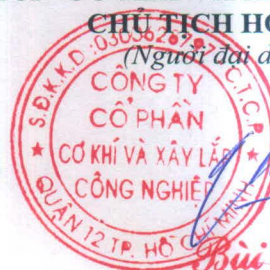 CHỦ TỊCH
(Người đại
S.Đ.K.K.D
C.T.C.P
CÔNG TY
CỔ PHẦN
CƠ KHÍ VÀ XÂY LẮP
CÔNG NGHIỆP
QUẬN 12 TP. HỒ CHÍ MINH
Bùi